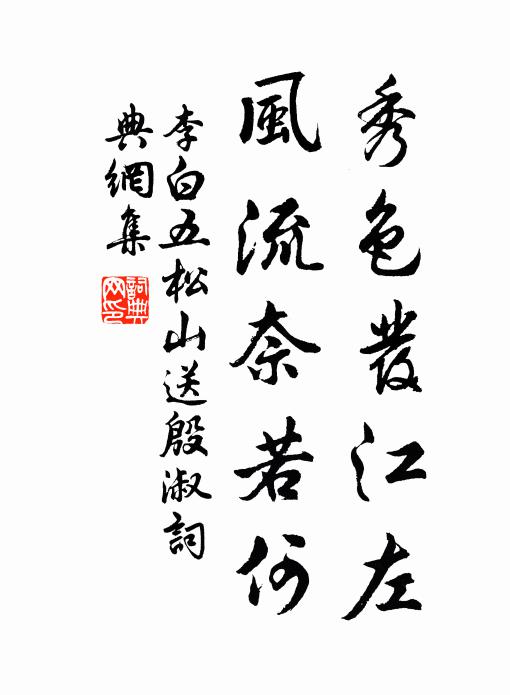 秀色發江左
風流奈若何
李白五松山送殷淑詞
典網集
詞典網印